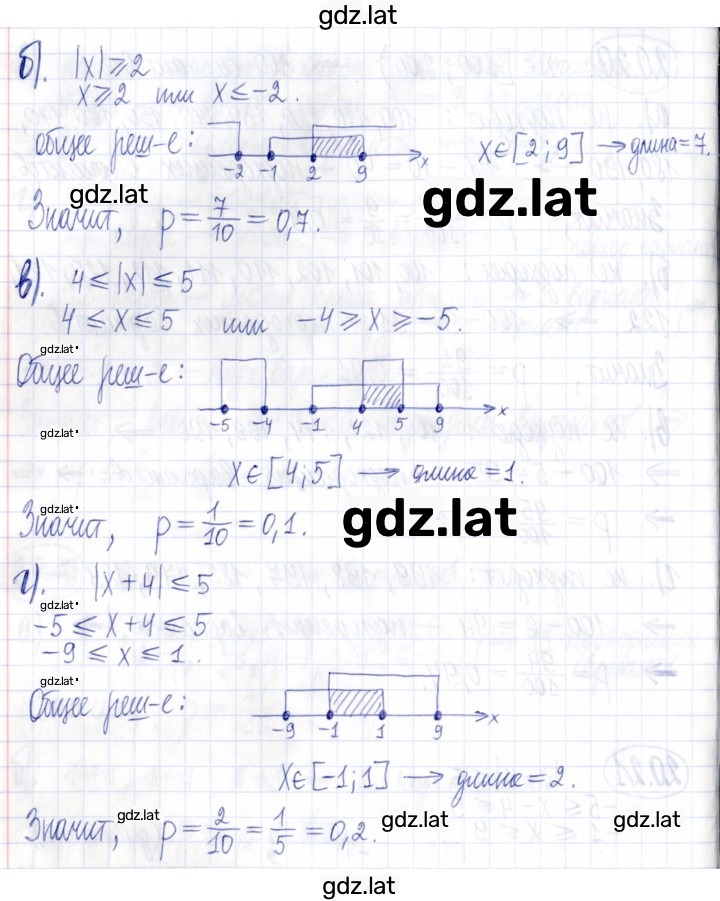 gdz.lat
б). |x| ⩾ 2
x ⩾ 2 или x ⩽ -2.
общее реш-е: -2 -1 2 9 x x∈[2;9] → длина=7.
gdz.lat gdz.lat
Значит, p = 7/10 = 0,7.
в). 4 ⩽ |x| ⩽ 5
4 ⩽ x ⩽ 5 или -4 ⩾ x ⩾ -5.
gdz.lat
Общее реш-е: -5 -4 -1 4 5 9 x
gdz.lat
x∈[4;5] → длина=1.
gdz.lat gdz.lat
Значит, p = 1/10 = 0,1.
г). |x+4| ⩽ 5
gdz.lat
-5 ⩽ x+4 ⩽ 5
-9 ⩽ x ⩽ 1.
gdz.lat
Общее реш-е: -9 -1 1 9 x
x∈[-1;1] → длина=2.
gdz.lat gdz.lat gdz.lat
Значит, p = 2/10 = 1/5 = 0,2.
gdz.lat